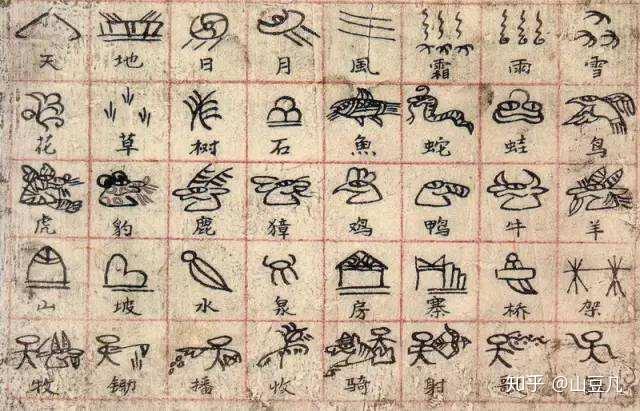 天 地 日 月 風 霜 雨 雪
花 草 树 石 魚 蛇 蛙 鸟
虎 豹 鹿 獐 鸡 鸭 牛 羊
山 坡 水 泉 房 寨 桥 架
牧 锄 播 收 骑 射 歌
知乎 @山豆几